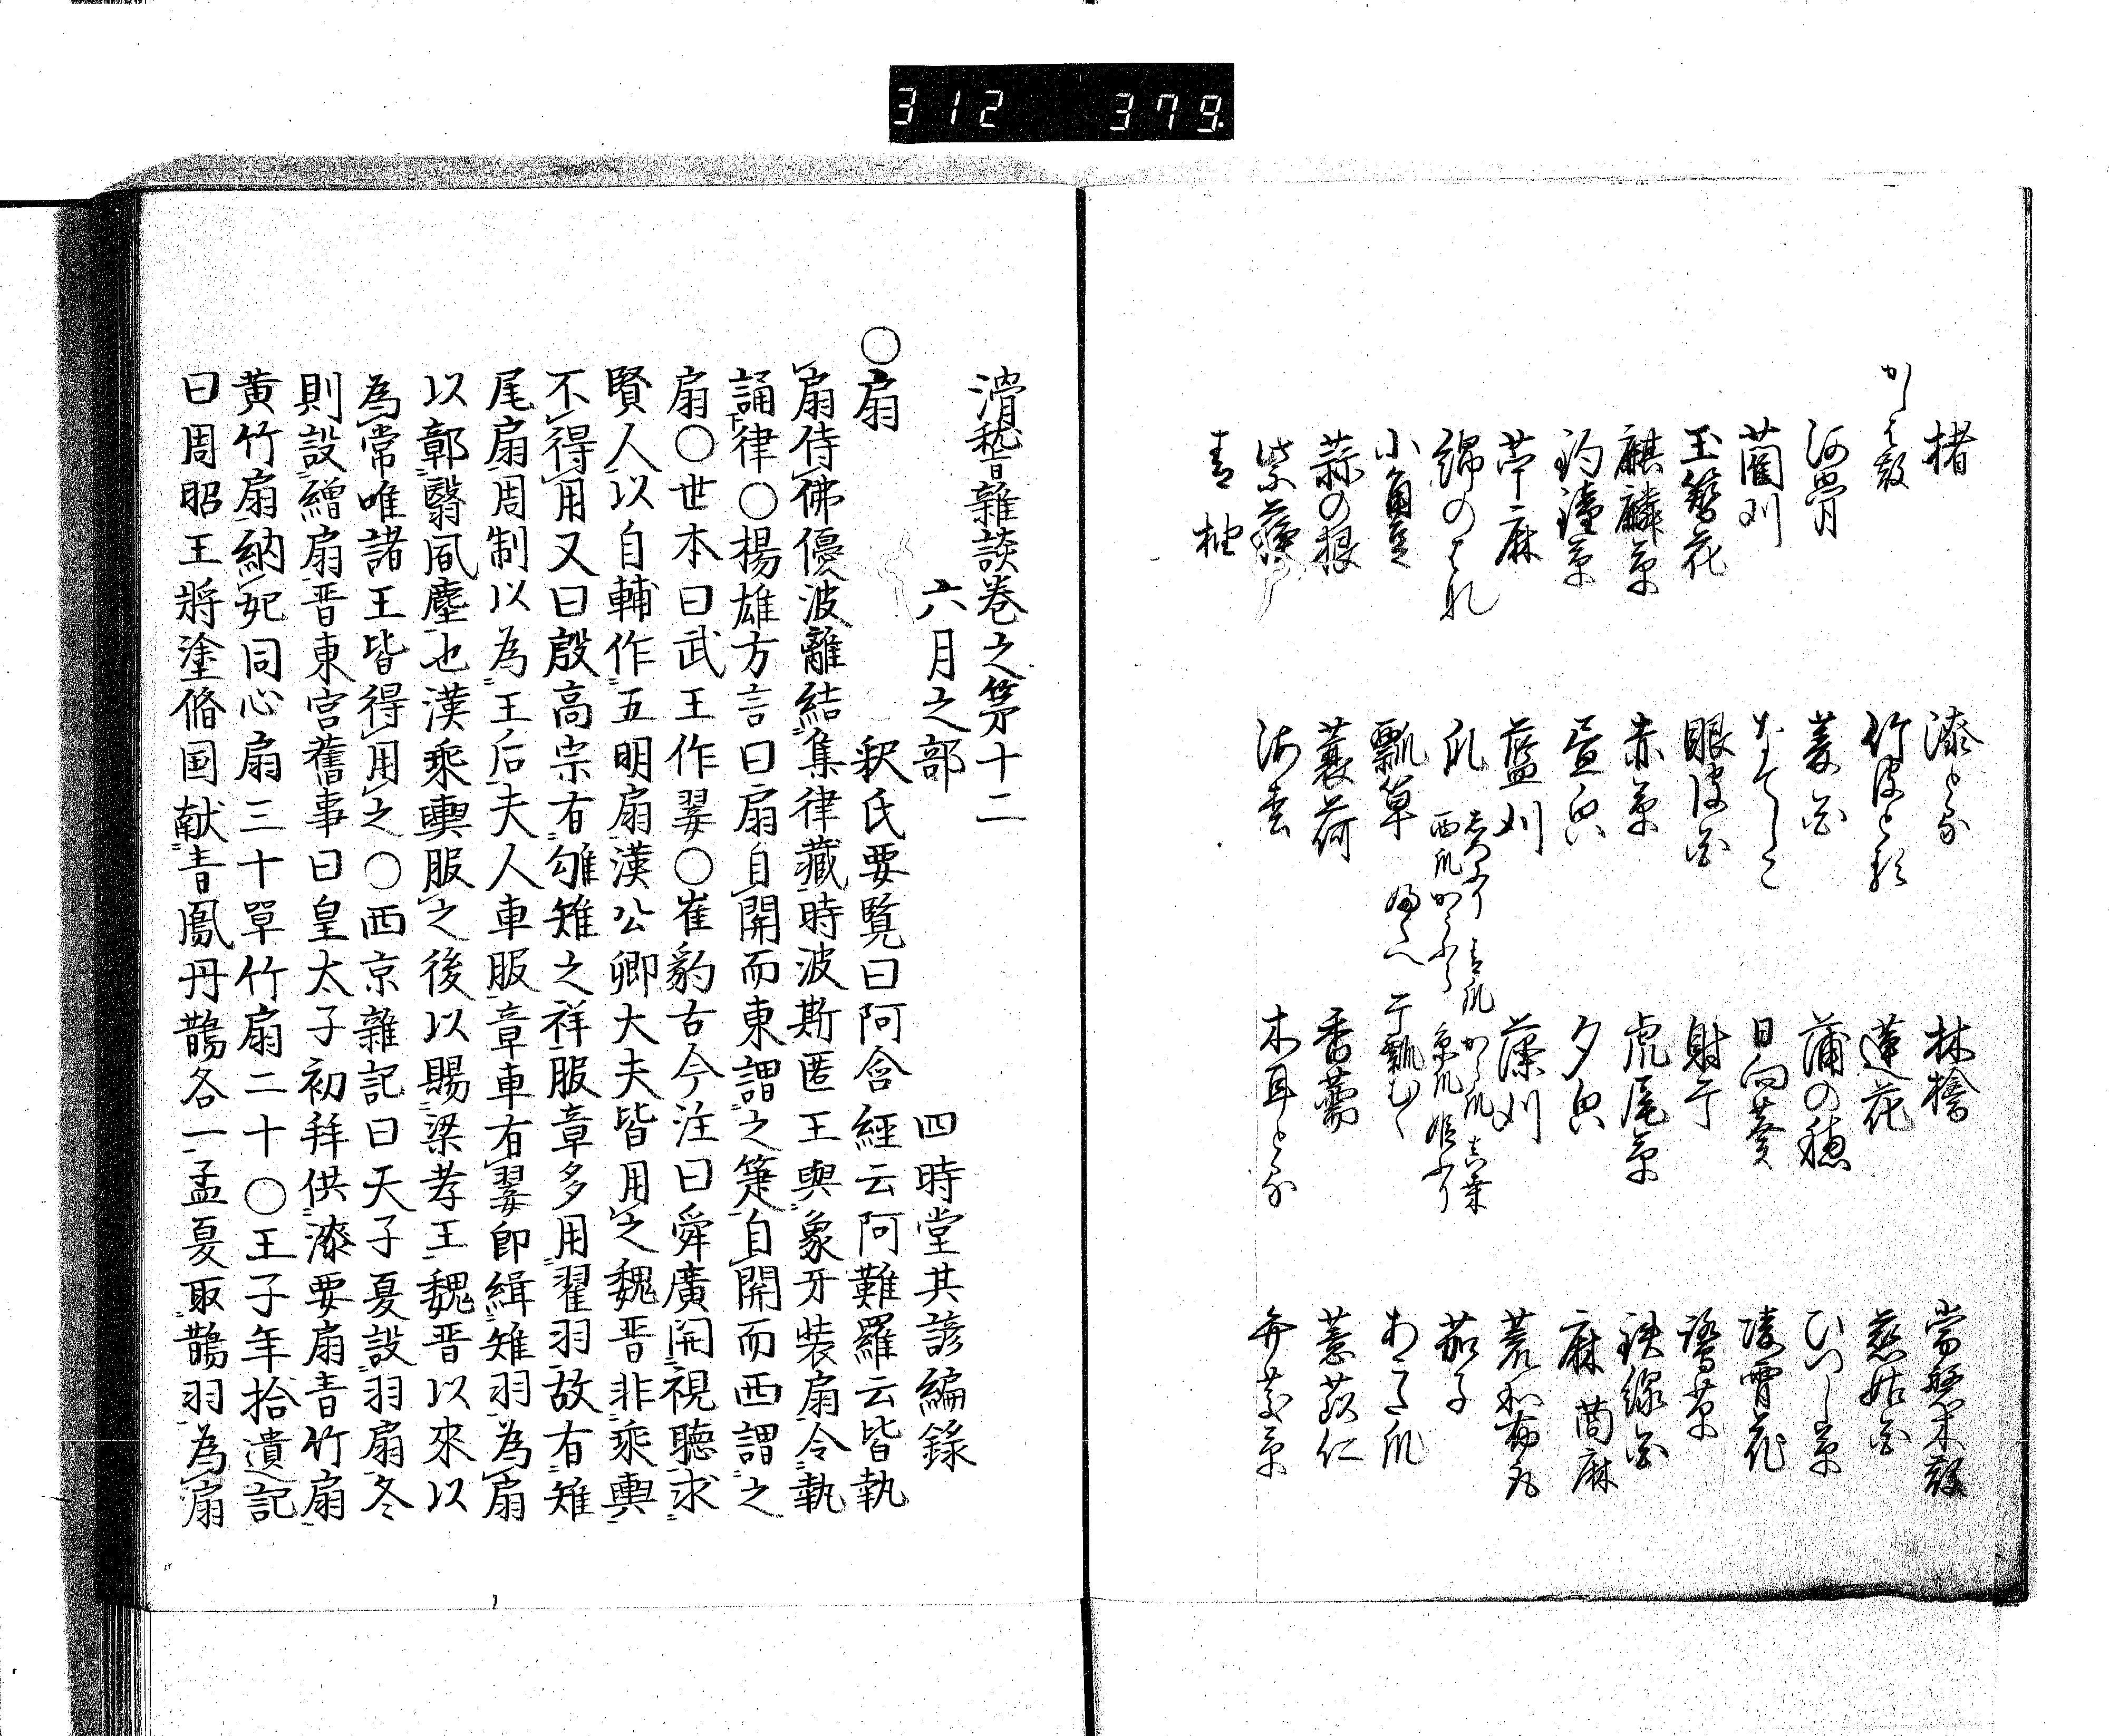 312 379.
楮 漆とる 林檎 常盤木
竹皮とる 蓮花 慈姑
河骨 菱 蒲の穂 ひつし草
藺刈 なてしこ 日向葵 凌霄花
玉簪花 眼皮 射干
麒麟草 赤草 虎尾草 鉄線
昼 夕 麻 茼麻
苧麻 藍刈 藻刈
綿のはな 瓜 茄子
小角豆 瓢簞
蒜の根 蘘荷 香薷 薏苡仁
紫蘇 海雲 木耳とる
青柚
滑稽雑談巻之第十二
六月之部 四時堂其諺編錄
〇扇 釈氏要覧曰阿含經云阿難羅云皆執
扇侍佛優波離結集律藏時波斯匿王與象牙装扇令執
誦律〇揚雄方言曰扇自開而東謂之箑自開而西謂之
扇〇世本曰武王作翣〇崔豹古今注曰舜廣開視聴求
賢人以自輔作五明扇漢公卿大夫皆用之魏晋非乘輿
不得用又曰殷高宗有雊雉之祥服章多用翟羽故有雉
尾扇周制以為王后夫人車服章車有翣即緝雉羽為扇
以鄣翳風塵也漢乘輿服之後以賜梁孝王魏晋以來以
為常唯諸王皆得用之〇西京雜記曰天子夏設羽扇冬
則設繒扇晋東宮舊事曰皇太子初拜供漆要扇青竹扇
黄竹扇納妃同心扇三十單竹扇二十〇王子年拾遺記
曰周昭王將塗脩国献青鳳丹鵲各一孟夏取鵲羽為扇